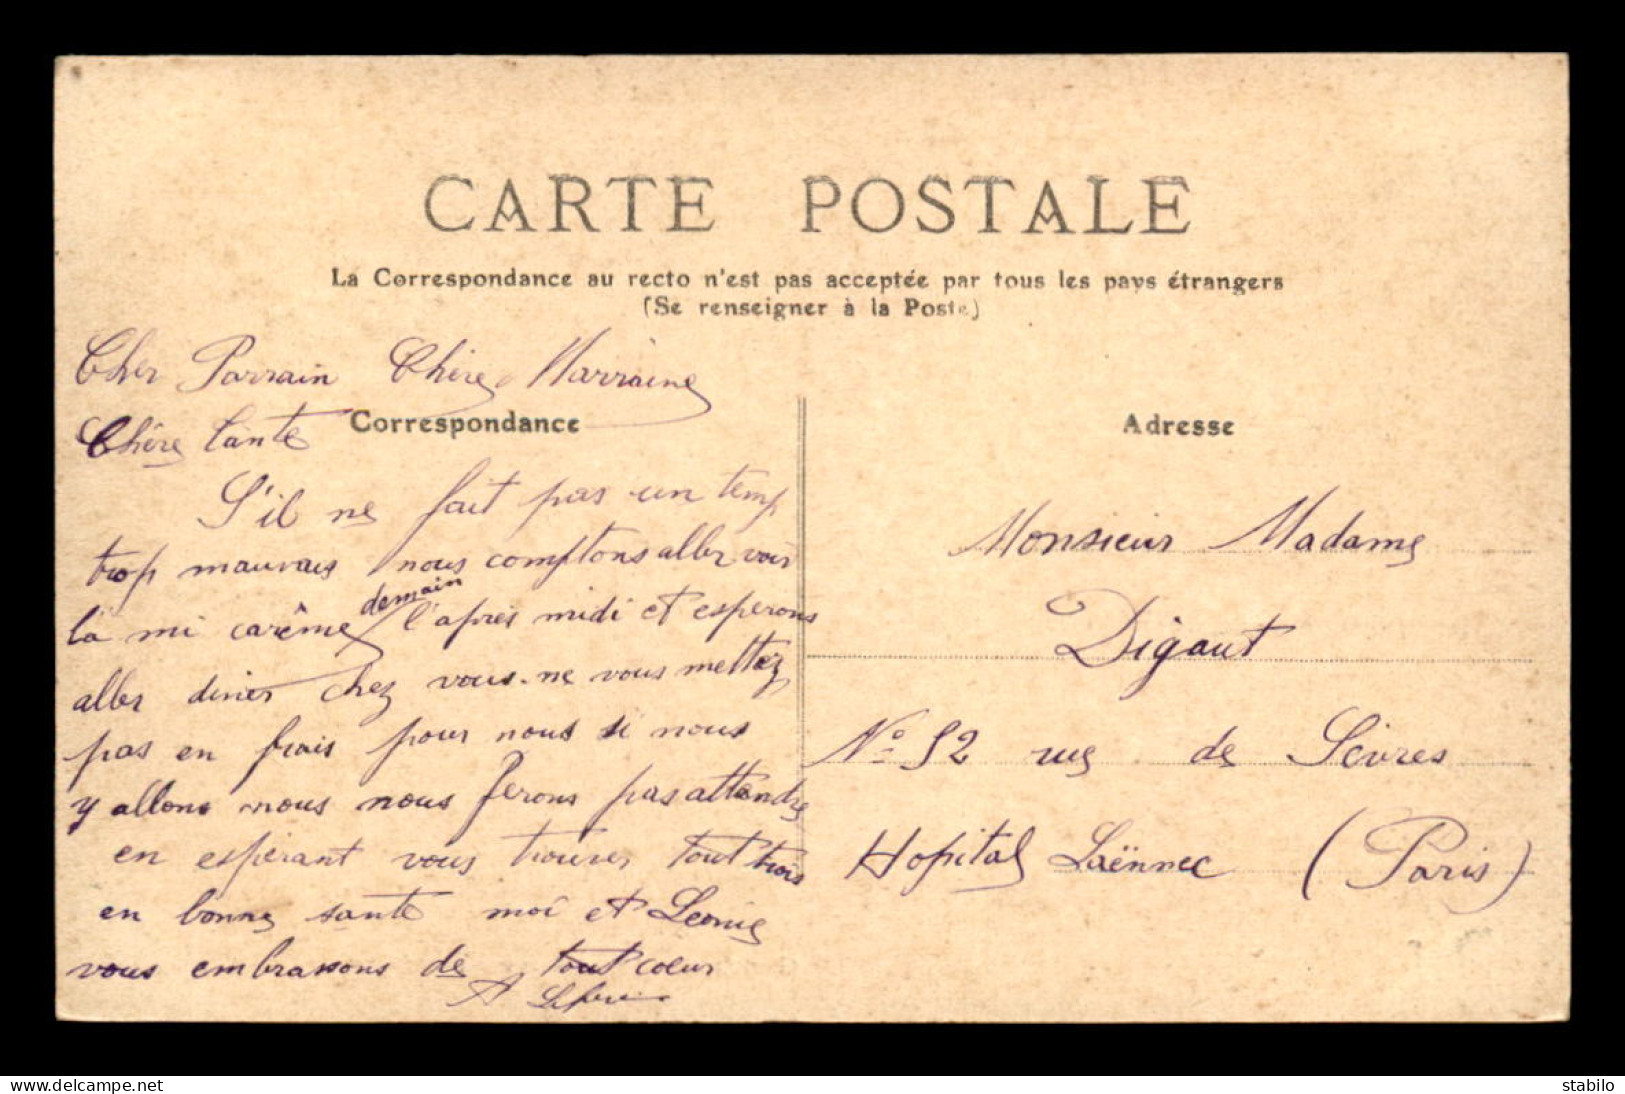 CARTE POSTALE
La Correspondance au recto n'est pas acceptée par tous les pays étrangers
(Se renseigner à la Poste)
Cher Parrain Chère Marraine
Correspondance
Chère tante
S'il ne fait pas un temp
trop mauvais nous comptons aller voir
demain
la mi carême l'après midi et esperons
aller diner chez vous. ne vous mettez
pas en frais pour nous si nous
y allons nous nous ferons pas attendre
en espérant vous trouver tout trois
en bonne santé moi et Leonie
vous embrassons de tout coeur
A
Adresse
Monsieur Madame
Digaut
No 52 rue de Sèvres
Hopital Laënnec (Paris)
stabilo
delcampe.net